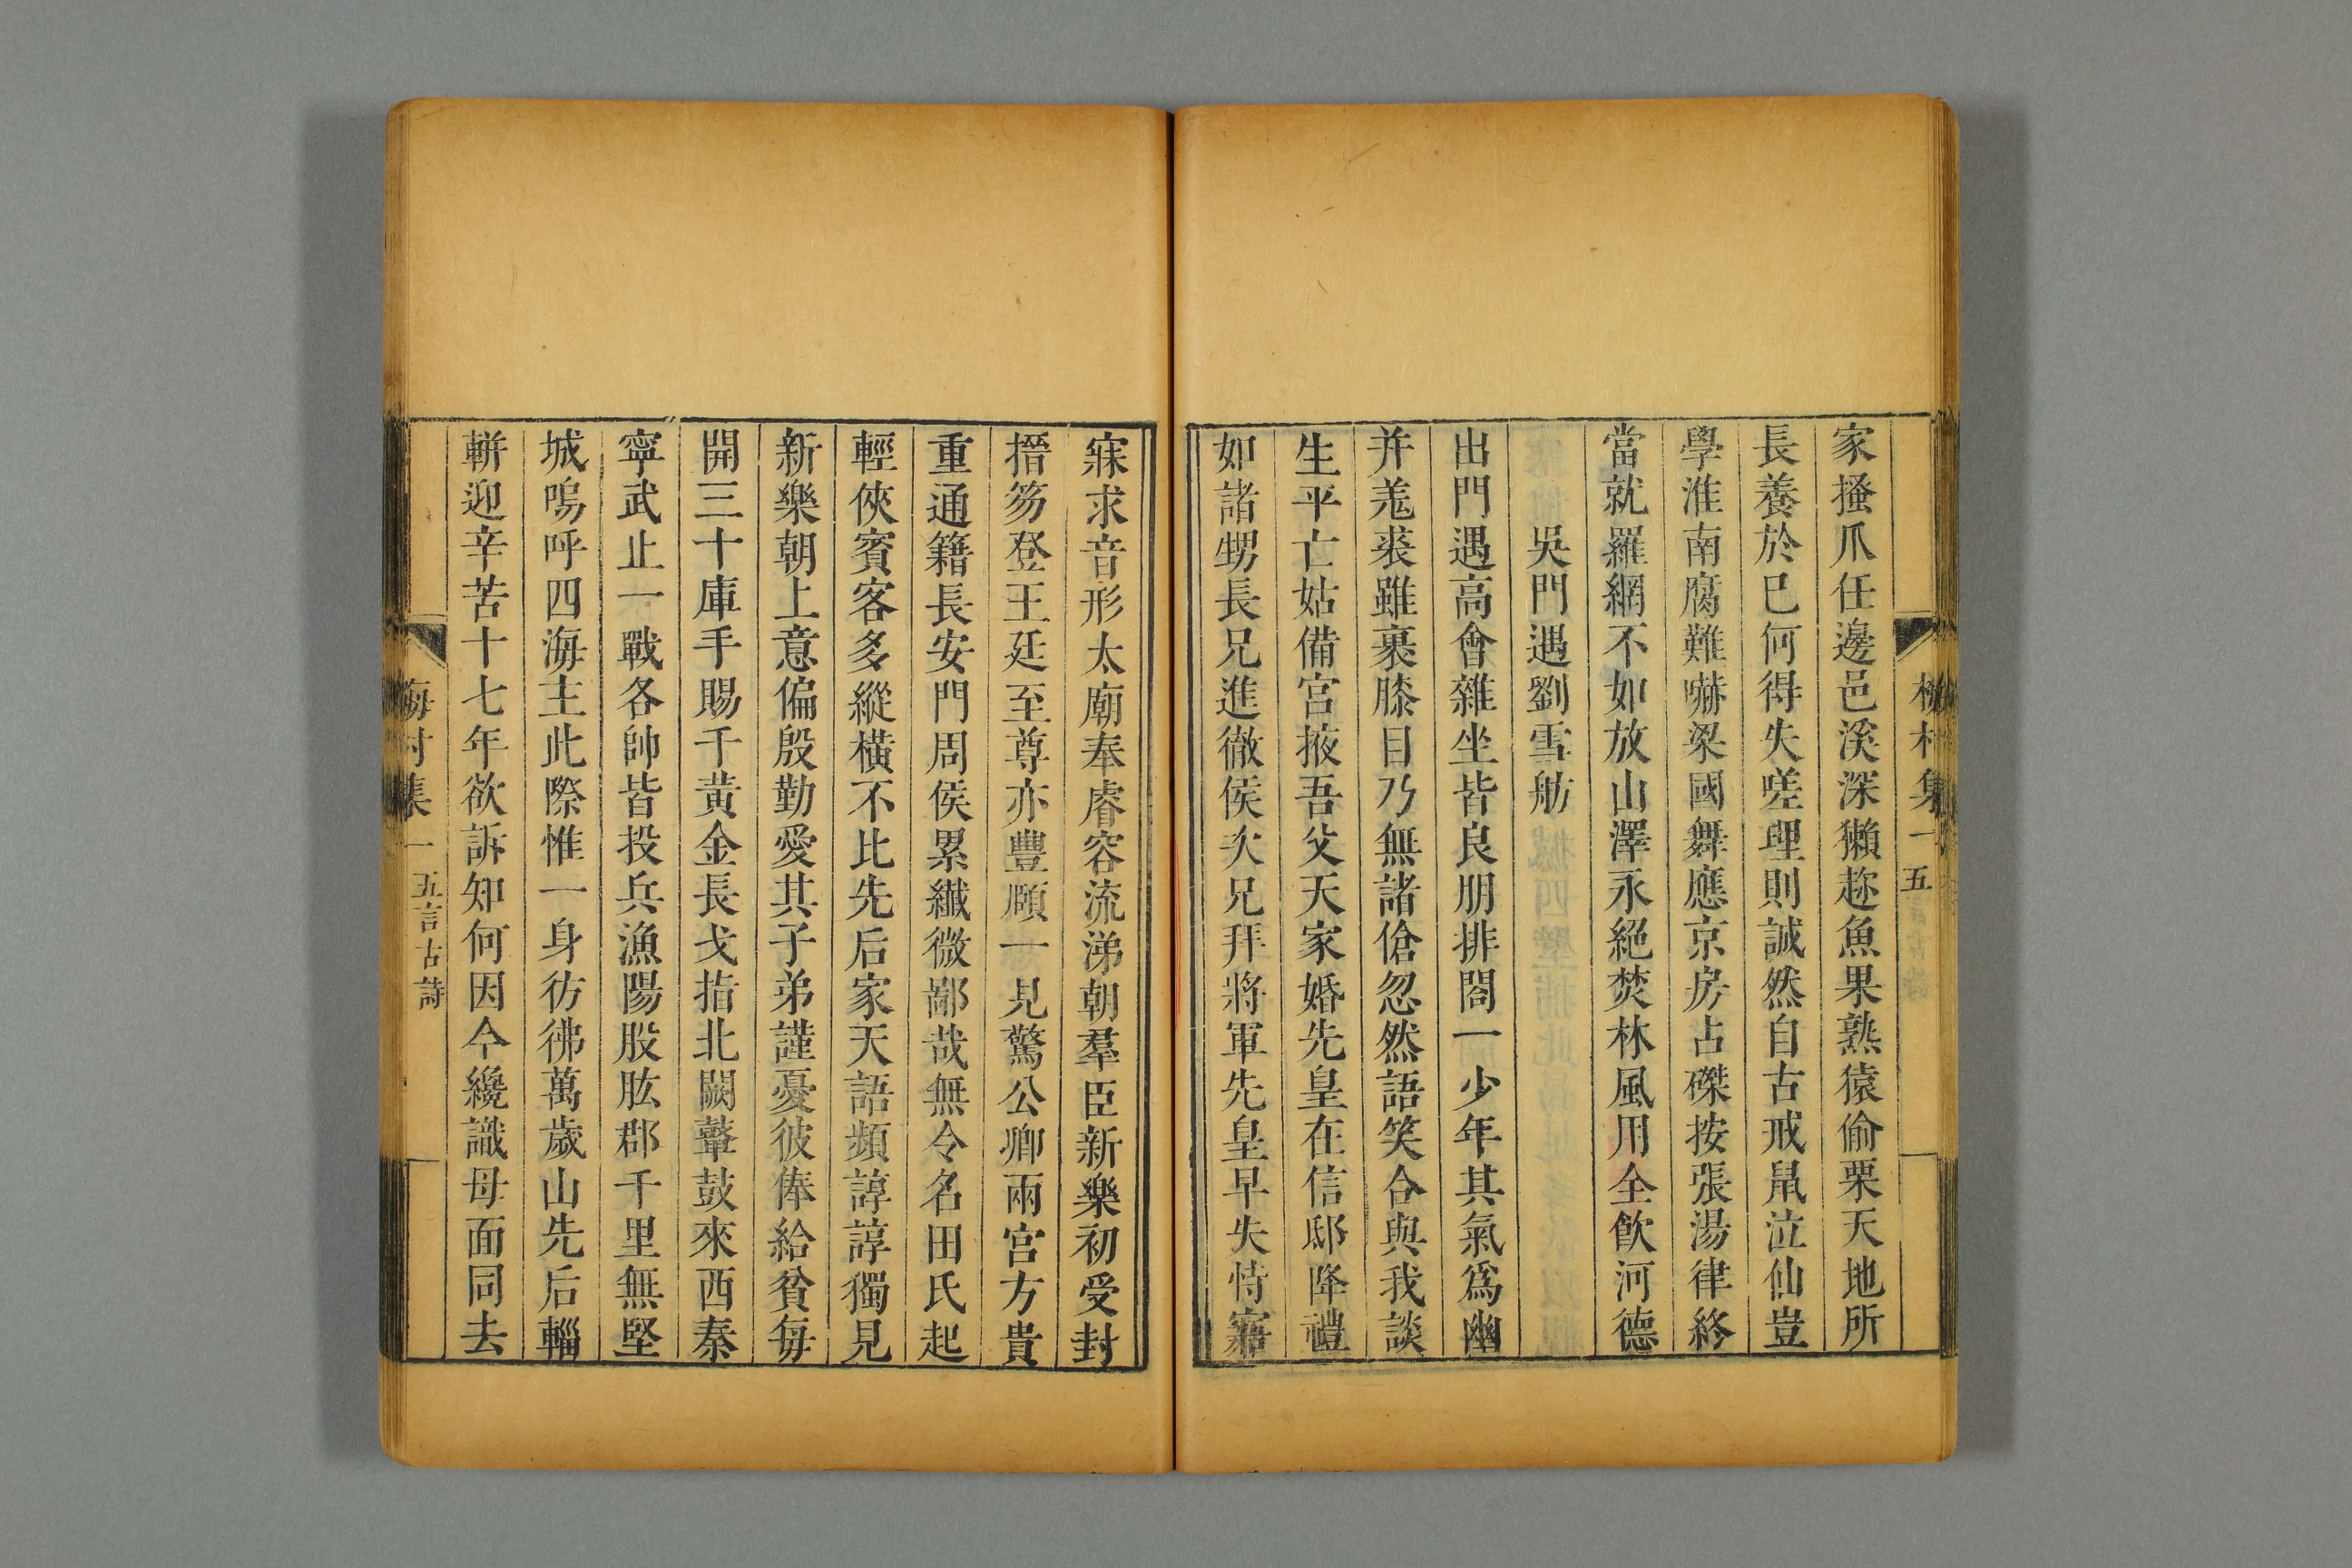 家搔爪任邊邑溪深獺趂魚果熟猿偷栗天地所
長養於巳何得失嗟理則誠然自古戒鼠泣仙豈
學淮南腐難嚇梁國舞應京房占磔按張湯律終
當就羅網不如放山澤永絕焚林風用全飲河德
吳門遇劉雪舫
出門遇高會雜坐皆良朋排閤一少年其氣爲幽
并羗裘雖裹膝目乃無諸傖忽然語笑合與我談
生平亡姑備宮掖吾父天家婚先皇在信邸降禮
如諸甥長兄進徹侯次兄拜將軍先皇早失恃寤
寐求音形太廟奉睿容流涕朝羣臣新樂初受封
搢笏登王廷至尊亦豐頤一見驚公卿兩宮方貴
重通籍長安門周侯累纖微鄙哉無令名田氏起
輕俠賓客多縱橫不比先后家天語頻諄諄獨見
新樂朝上意偏殷勤愛其子弟謹憂彼俸給貧每
開三十庫手賜千黃金長戈指北闕鼙鼓來西秦
寧武止一戰各帥皆投兵漁陽股肱郡千里無堅
城嗚呼四海主此際惟一身彷彿萬歲山先后輜
輧迎辛苦十七年欲訴知何因今纔識母面同去
梅村集一 五言古詩